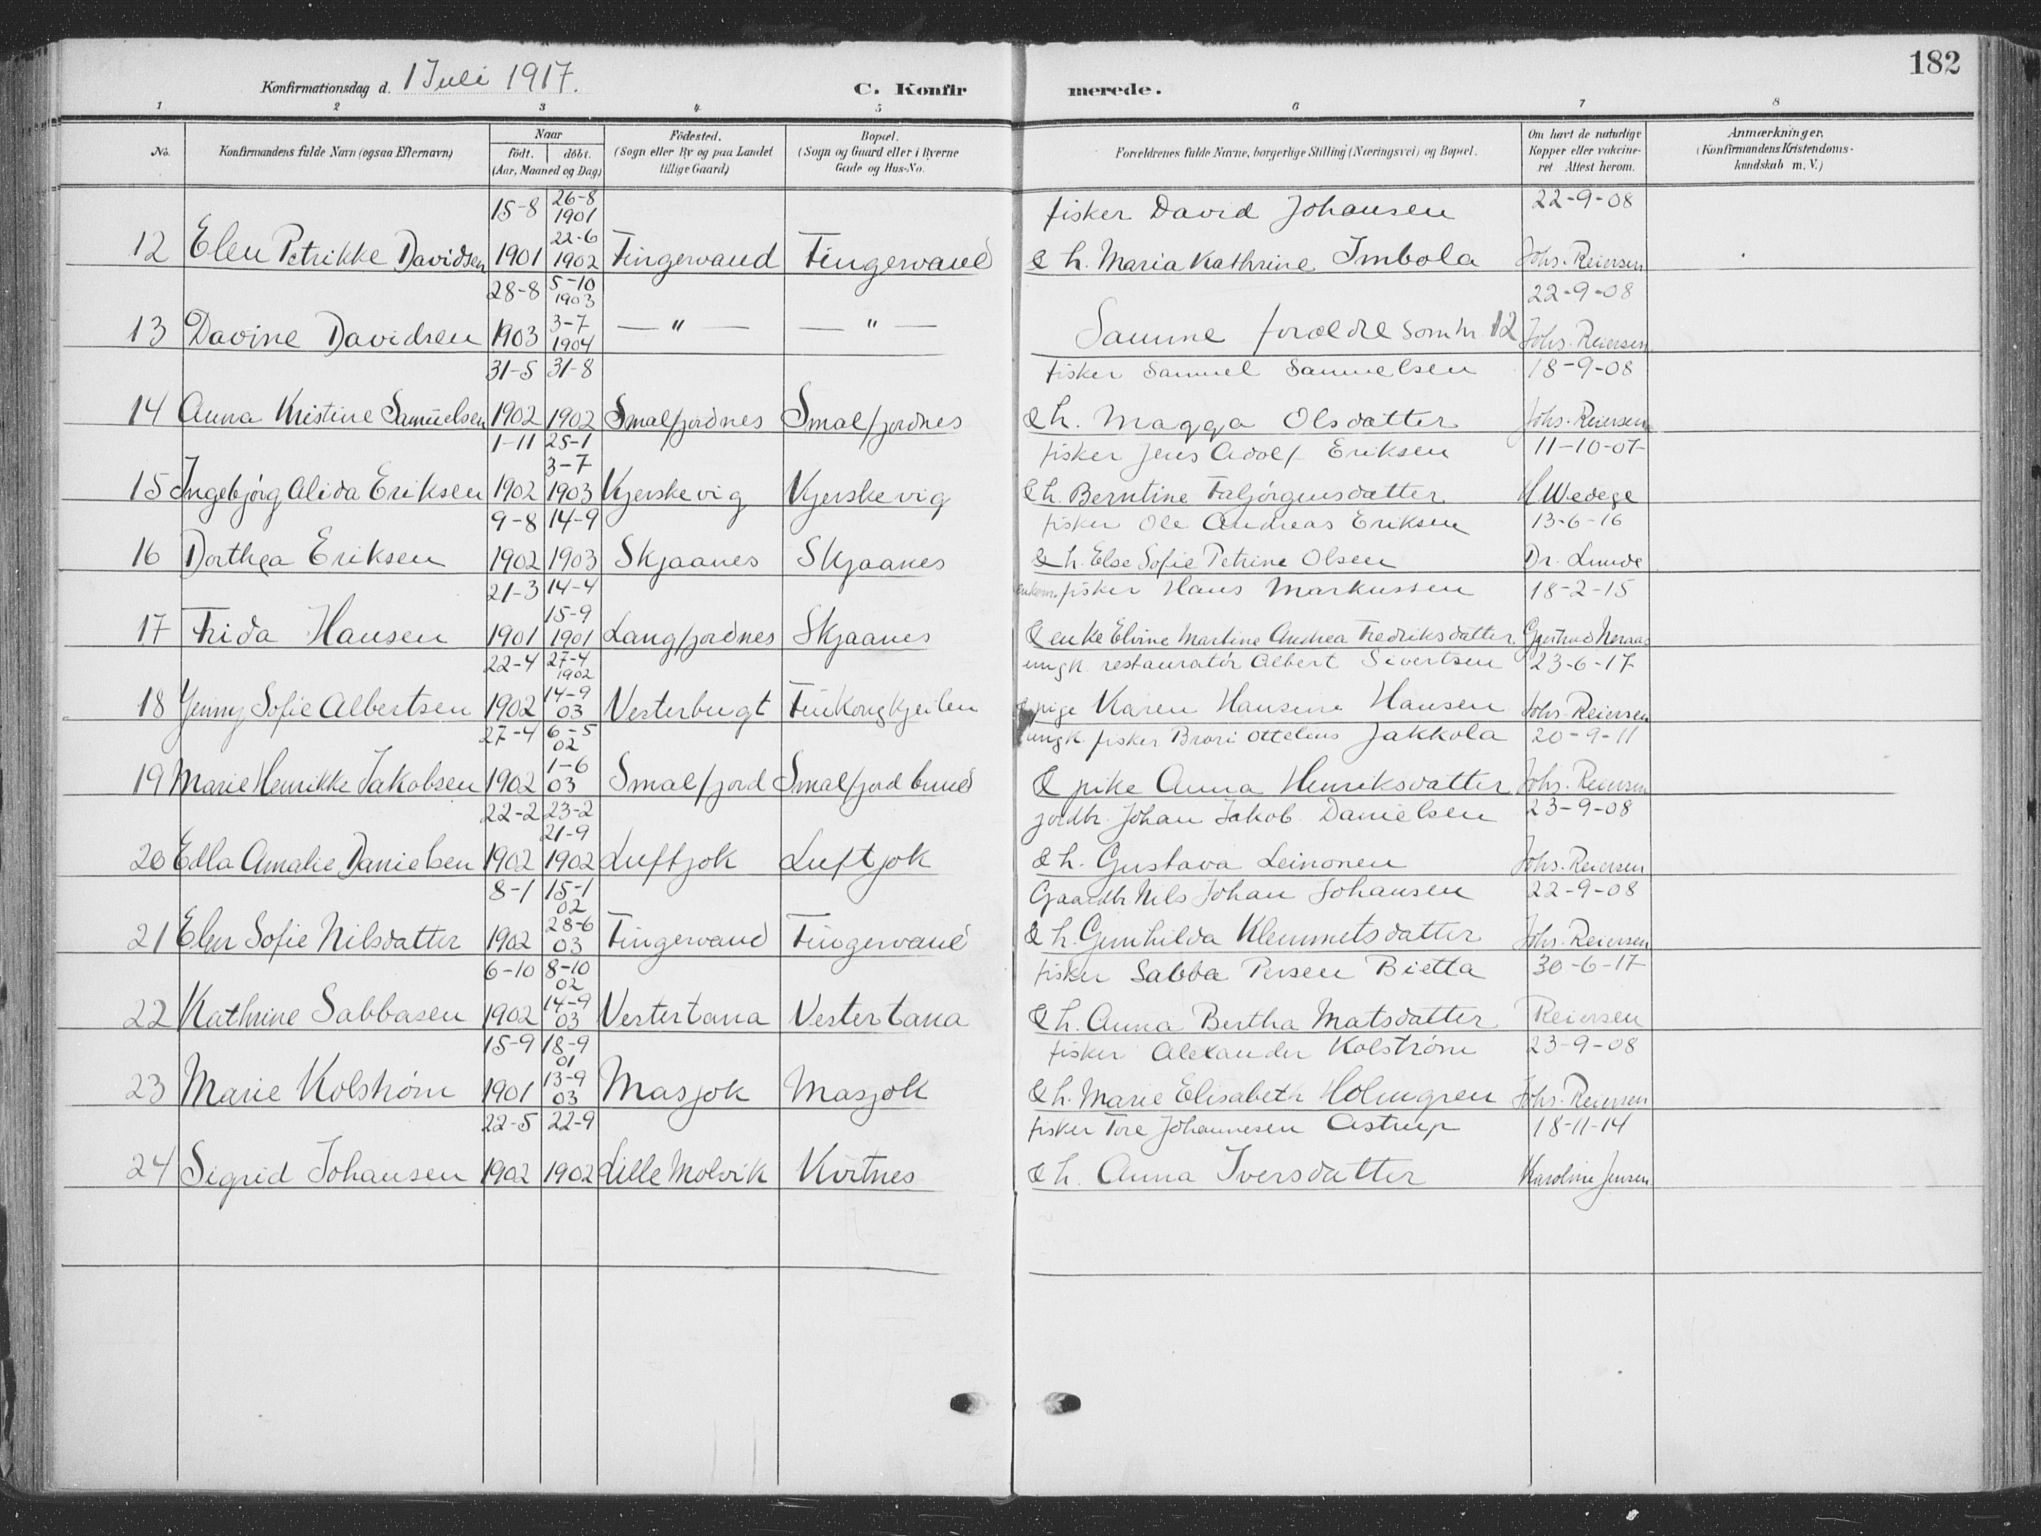 182
Konfirmationsdag d. 1 Juli 1917.
C. Konfirmerede.
1 2 3 4 5 6 7 8
No. Konfirmandens fulde Navn (ogsaa Efternavn) Naar født. døbt. (Aar, Maaned og Dag) Fødested. (Sogn eller By og paa Landet tillige Gaard) Bopæl. (Sogn og Gaard eller i Byerne Gade og Hus-No. Forældrenes fulde Navne, borgerlige Stilling (Næringsvei) og Bopæl. Om havt de naturlige Kopper eller vakcineret. Attest herom. Anmærkninger. (Konfirmandens Kristendomskundskab m. V.)
15-8 26-8 1901 fisker David Johansen 22-9-08
12 Elen Petrikke Davidsen 1901 22-6 1902 Fingervand Fingervand & h. Maria Kathrine Imbola Johs. Reiersen
28-8 5-10 1903 22-9-08
13 Davine Davidsen 1903 3-7 1904 — " — — " — Samme forældre som nr. 12 Johs. Reiersen
31-5 31-8 fisker Samuel Samuelsen 18-9-08
14 Anna Kristine Samuelsen 1902 1902 Smalfjordnes Smalfjordnes & h. Magga Olsdatter Johs. Reiersen
1-11 25-1 fisker Jens Adolf Eriksen 11-10-07
15 Ingebjørg Alida Eriksen 1902 3-7 1903 Kjerskevig Kjerskevig & h. Berntine Faljørgensdatter H Wedege
9-8 14-9 fisker Ole Andreas Eriksen 13-6-16
16 Dorthea Eriksen 1902 1903 Skjaanes Skjaanes & h. Else Sofie Petrine Olsen Dr. Lunde
21-3 14-4 enkem. fisker Hans Markussen 18-2-15
17 Frida Hansen 1901 15-9 1901 Langfjordnes Skjaanes & enke Elvine Martine Andrea Fredriksdatter Gjertrud Neraas
22-4 27-4 1902 ungk. restauratør Albert Sivertsen 23-6-17
18 Jenny Sofie Albertsen 1902 14-9 03 Vesterbugt Finkongkjeilen & pige Karen Hansine Hansen Johs. Reiersen
27-4 6-5 02 ungk. fisker Brori Ottelius Jakkola 20-9-11
19 Marie Henrikke Jakobsen 1902 1-6 03 Smalfjord Smalfjord bund & pike Anna Henriksdatter Johs. Reiersen
22-2 23-2 jordbr. Johan Jakob Danielsen 23-9-08
20 Edla Amalie Danielsen 1902 21-9 1902 Luftjok Luftjok & h. Gustava Leinonen Johs. Reiersen
8-1 15-1 02 Gaardbr Nils Johan Johansen 22-9-08
21 Elen Sofie Nilsdatter 1902 28-6 03 Fingervand Fingervand & h. Gunhilda Klemmetsdatter Johs. Reiersen
6-10 8-10 02 fisker Sabba Persen Bietta 30-6-17
22 Kathrine Sabbasen 1902 14-9 03 Vestertana Vestertana & h. Anna Bertha Matsdatter Reiersen
15-9 18-9 01 fisker Alexander Kolstrøm 23-9-08
23 Marie Kolstrøm 1901 13-9 03 Masjok Masjok & h. Marie Elisabeth Holmgren Johs. Reiersen
22-5 22-9 fisker Tore Johannesen Astrup 18-11-14
24 Sigrid Johansen 1902 1902 Lille Molvik Kvitnes & h. Anna Iversdatter Karoline Jensen